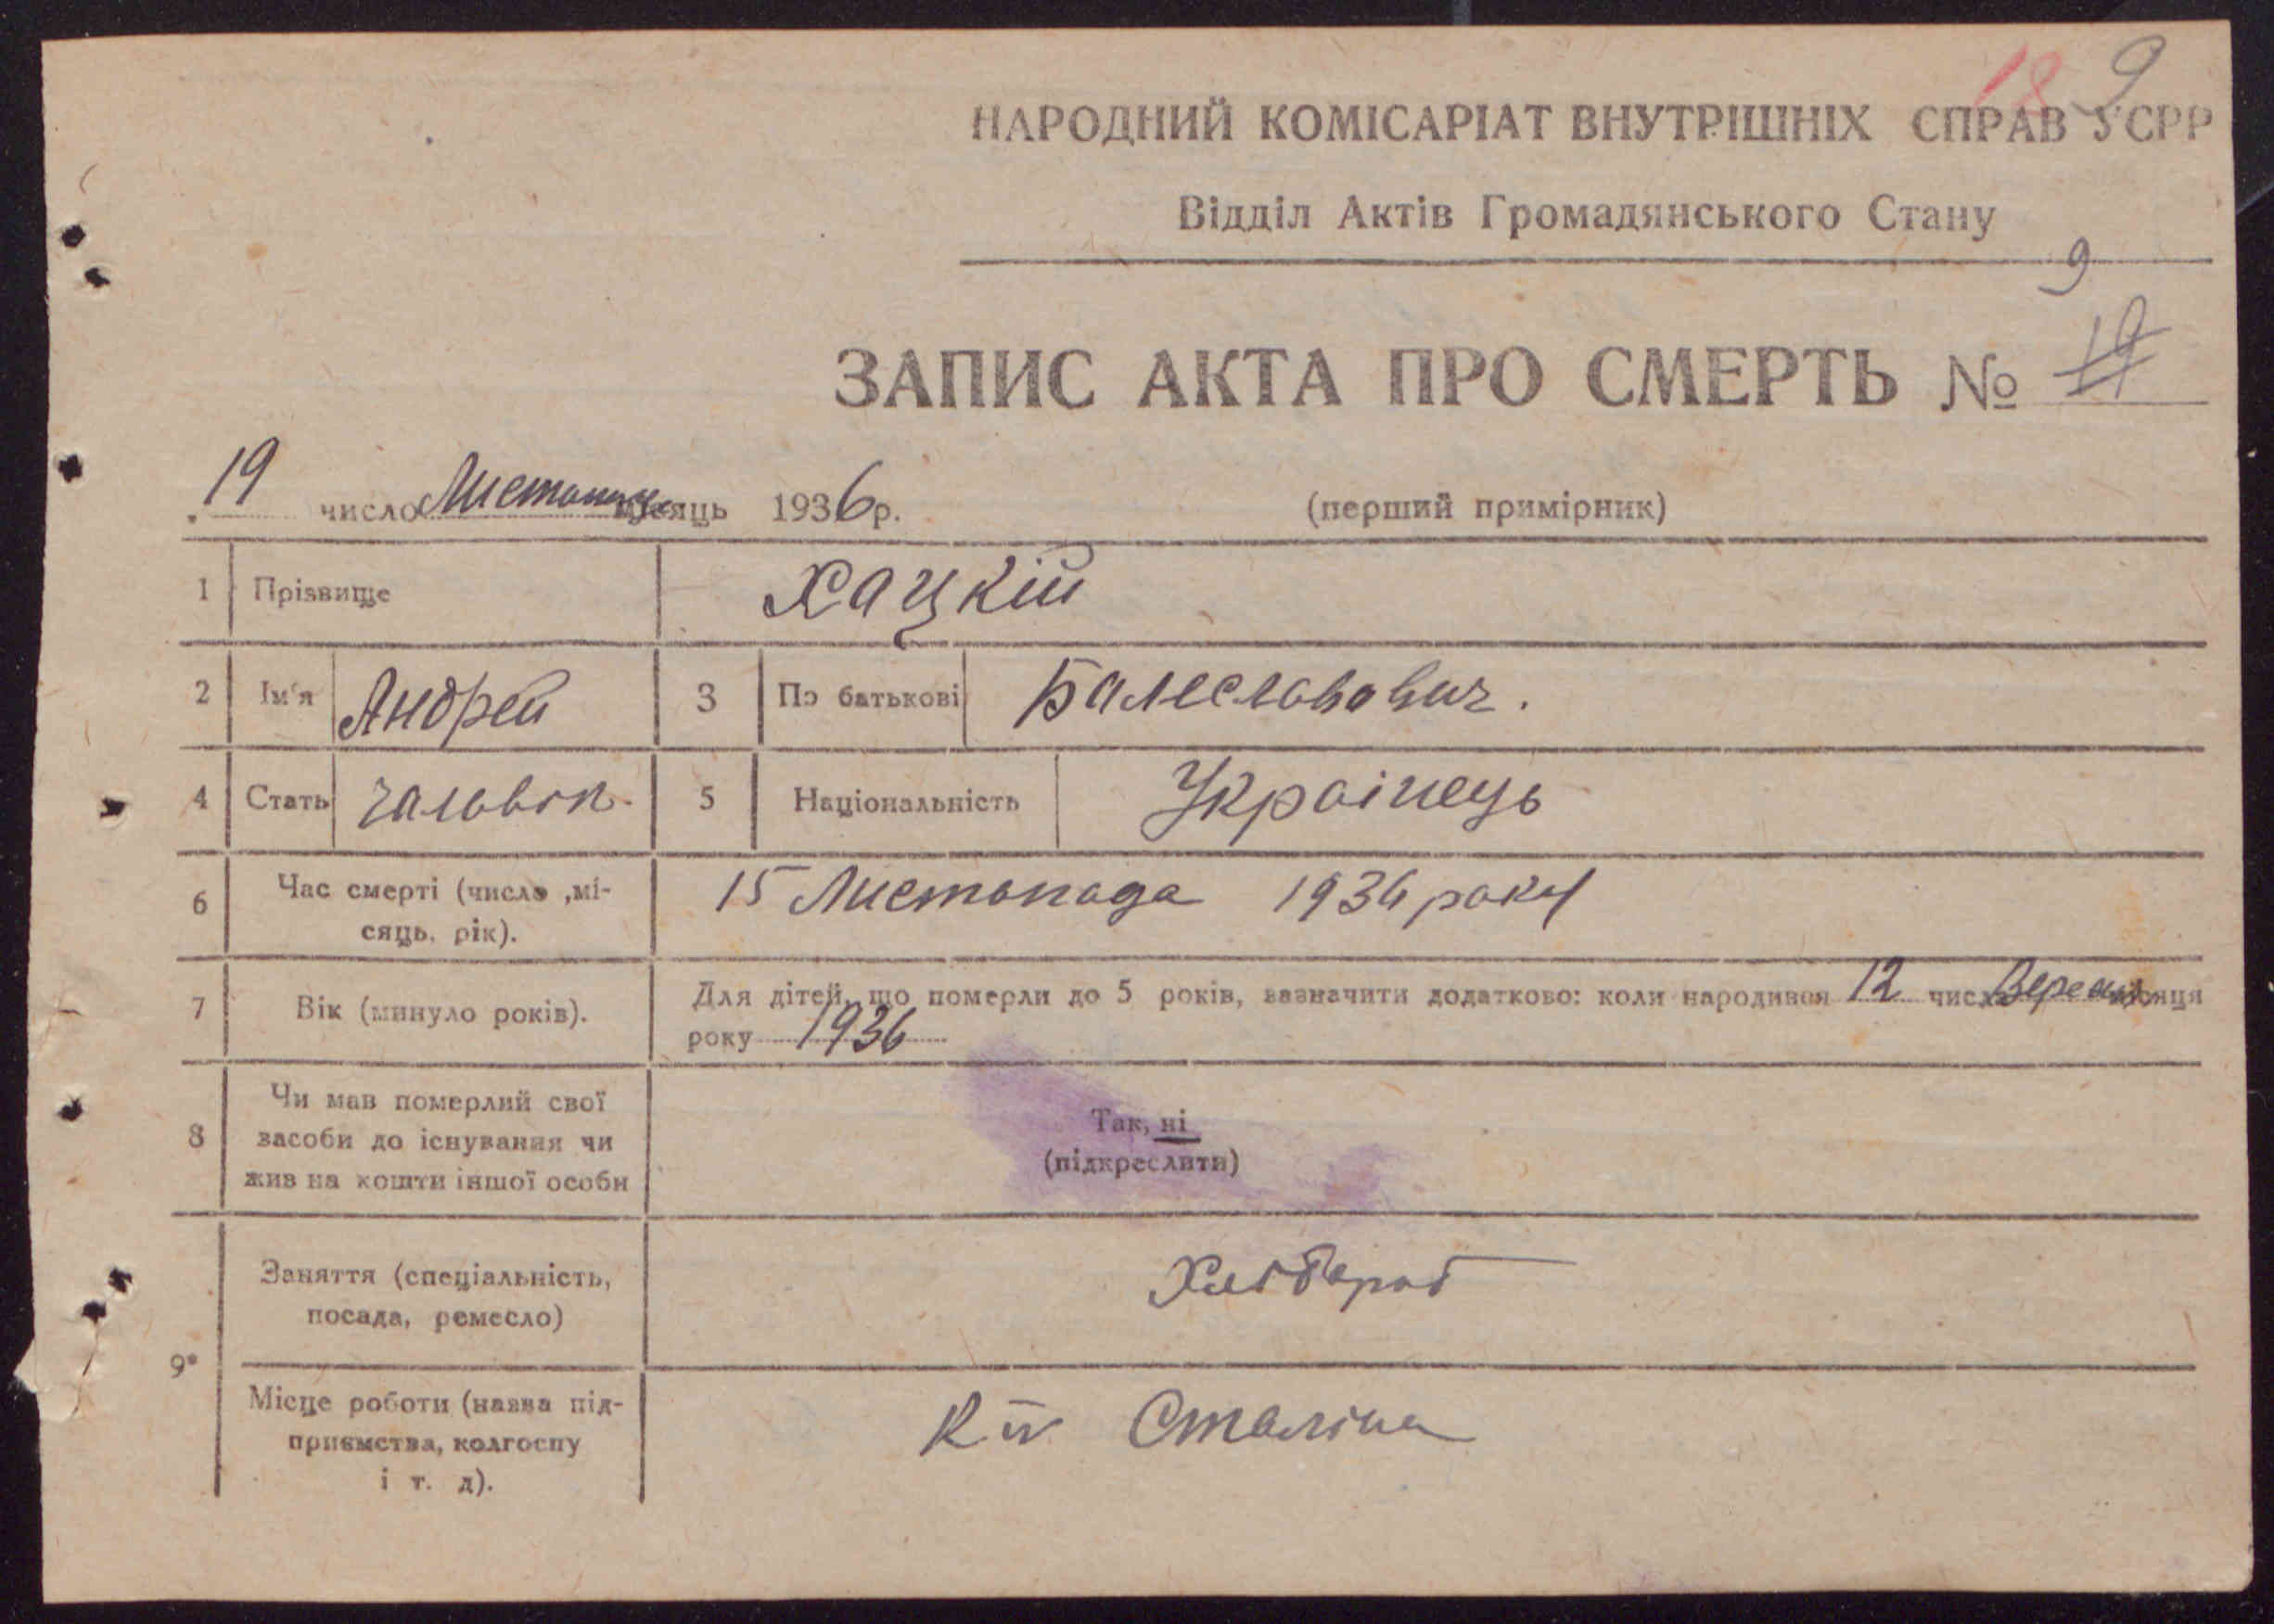 18 9
НАРОДНИЙ КОМІСАРІАТ ВНУТРІШНІХ СПРАВ УСРР
Відділ Актів Громадянського Стану
9
ЗАПИС АКТА ПРО СМЕРТЬ №
19 число Листопад місяць 1936 р. (перший примірник)
1 Прізвище Хацкій
2 Ім'я Андрей 3 По батькові Балеславович.
4 Стать чаловік. 5 Національність Українець
6 Час смерті (число ,мі-
сяць, рік).
15 Листопада 1936 року
7 Вік (минуло років).
Для дітей, що померли до 5 років, зазначити додатково: коли народився 12 числа Вересня місяця
року 1936
8 Чи мав померлий свої
засоби до існування чи
жив на кошти іншої особи
Так, ні
(підкреслити)
9 Заняття (спеціальність,
посада, ремесло)
Хлібороб
Місце роботи (назва під-
приємства, колгоспу
і т. д).
Сталіна